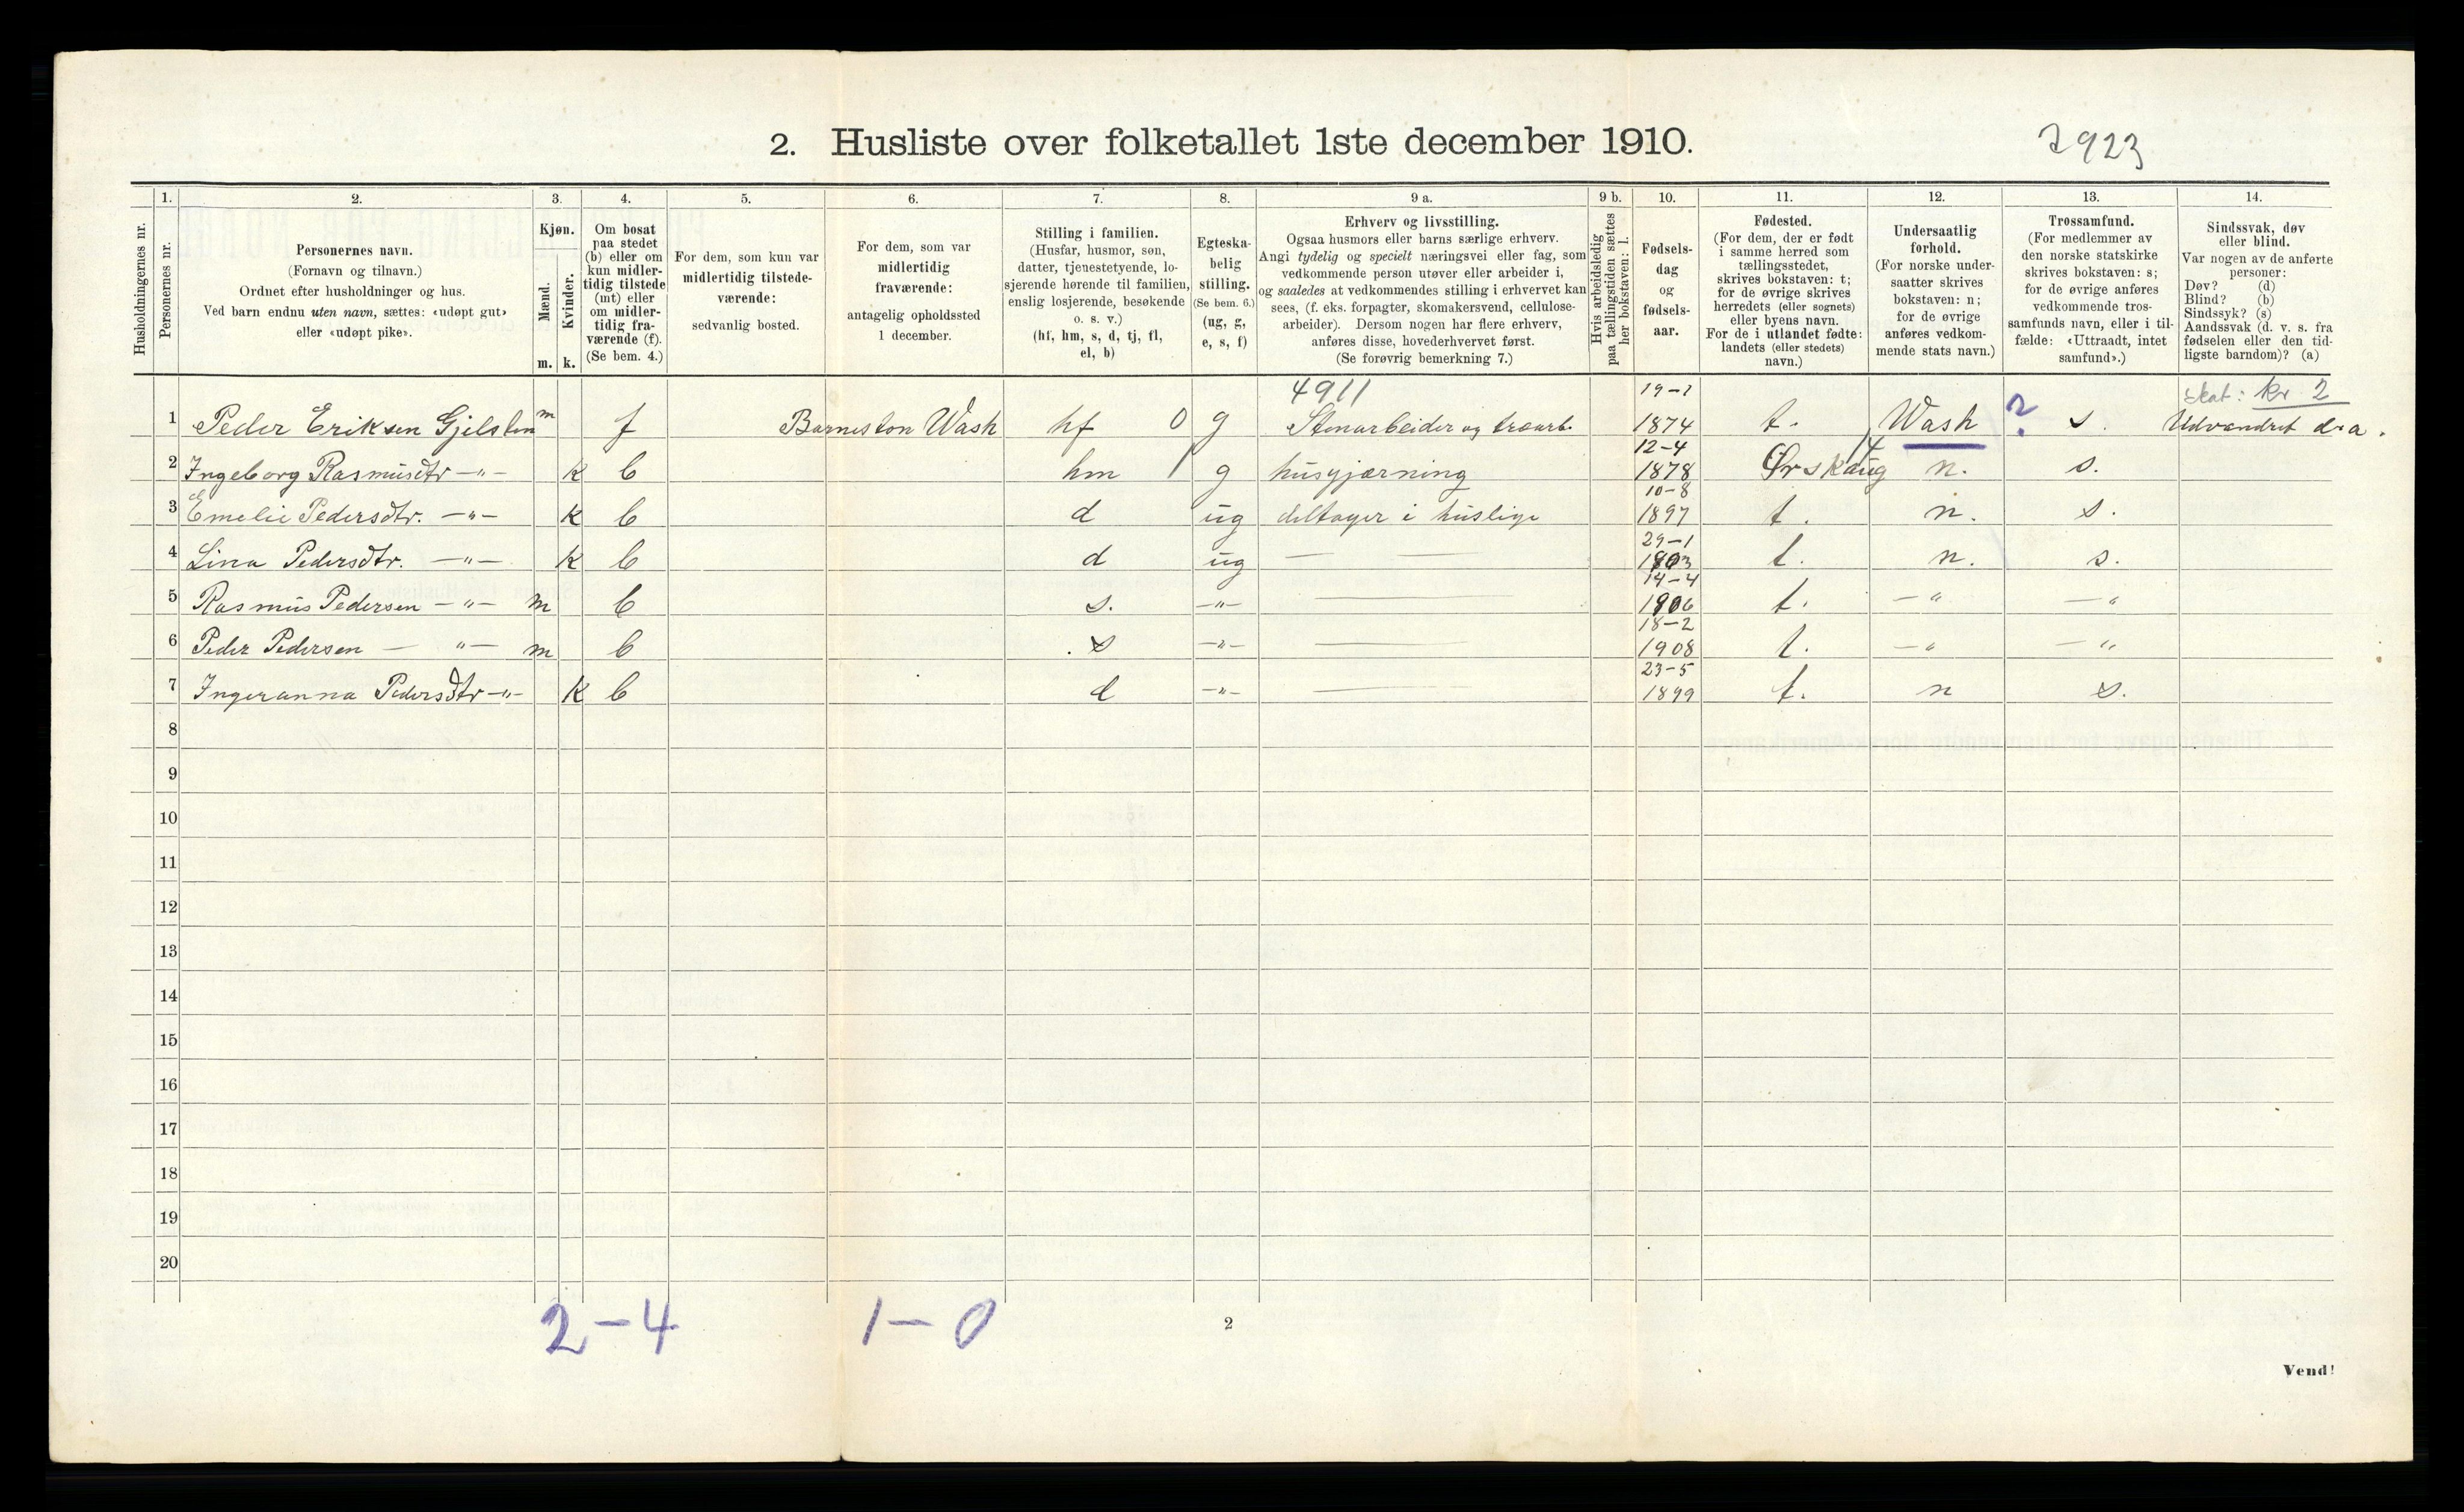 2. Husliste over folketallet 1ste december 1910.
2923
1. 2. 3. 4. 5. 6. 7. 8. 9 a. 9 b. 10. 11. 12. 13. 14.
Husholdningernes nr.
Personernes nr.
Personernes navn.
(Fornavn og tilnavn.)
Ordnet efter husholdninger og hus.
Ved barn endnu uten navn, sættes: «udøpt gut»
eller «udøpt pike».
Kjøn.
Mænd.
Kvinder.
m. k.
Om bosat
paa stedet
(b) eller om
kun midler-
tidig tilstede
(mt) eller
om midler-
tidig fra-
værende (f).
(Se bem. 4.)
For dem, som kun var
midlertidig tilstede-
værende:
sedvanlig bosted.
For dem, som var
midlertidig
fraværende:
antagelig opholdssted
1 december.
Stilling i familien.
(Husfar, husmor, søn,
datter, tjenestetyende, lo-
sjerende hørende til familien,
enslig losjerende, besøkende
o. s. v.)
(hf, hm, s, d, tj, fl,
el, b)
Egteska-
belig
stilling.
(Se bem. 6.)
(ug, g,
e, s, f)
Erhverv og livsstilling.
Ogsaa husmors eller barns særlige erhverv.
Angi tydelig og specielt næringsvei eller fag, som
vedkommende person utøver eller arbeider i,
og saaledes at vedkommendes stilling i erhvervet kan
sees, (f. eks. forpagter, skomakersvend, cellulose-
arbeider). Dersom nogen har flere erhverv,
anføres disse, hovederhvervet først.
(Se forøvrig bemerkning 7.)
Hvis arbeidsledig
paa tællingstiden sættes
her bokstaven: l.
Fødsels-
dag
og
fødsels-
aar.
Fødested.
(For dem, der er født
i samme herred som
tællingsstedet,
skrives bokstaven: t;
for de øvrige skrives
herredets (eller sognets)
eller byens navn.
For de i utlandet fødte:
landets (eller stedets)
navn.)
Undersaatlig
forhold.
(For norske under-
saatter skrives
bokstaven: n;
for de øvrige
anføres vedkom-
mende stats navn.)
Trossamfund.
(For medlemmer av
den norske statskirke
skrives bokstaven: s;
for de øvrige anføres
vedkommende tros-
samfunds navn, eller i til-
fælde: «Uttraadt, intet
samfund».)
Sindssvak, døv
eller blind.
Var nogen av de anførte
personer:
Døv? (d)
Blind? (b)
Sindssyk? (s)
Aandssvak (d. v. s. fra
fødselen eller den tid-
ligste barndom)? (a)
4911 19-1 skat: kr 2
1 Peder Eriksen Gjelsten m f Barneston Wash hf 0 g Stenarbeider og træarb. 1874 t. Wash ? s. Udvandret d.a.
12-4 14
2 Ingeborg Rasmusdtr -"- k b hm 1 g husgjærning 1878 Ørskaug n. s.
10-8
3 Emelie Pedersdtr. -"- k b d ug deltager i huslige 1897 t. n. s.
29-1
4 Lina Pedersdtr. -"- k b d ug — — 1903 t. n. s.
14-4
5 Rasmus Pedersen -"- m b s. -"- — 1906 t. -"- -"-
18-2
6 Peder Pedersen - "- m b s -"- — 1908 t. -"- -"-
23-5
7 Ingeranna Pedersdtr -"- k b d -"- — 1899 t. n s.
8
9
10
11
12
13
14
15
16
17
18
19
20
2-4 1-0
2
Vend!